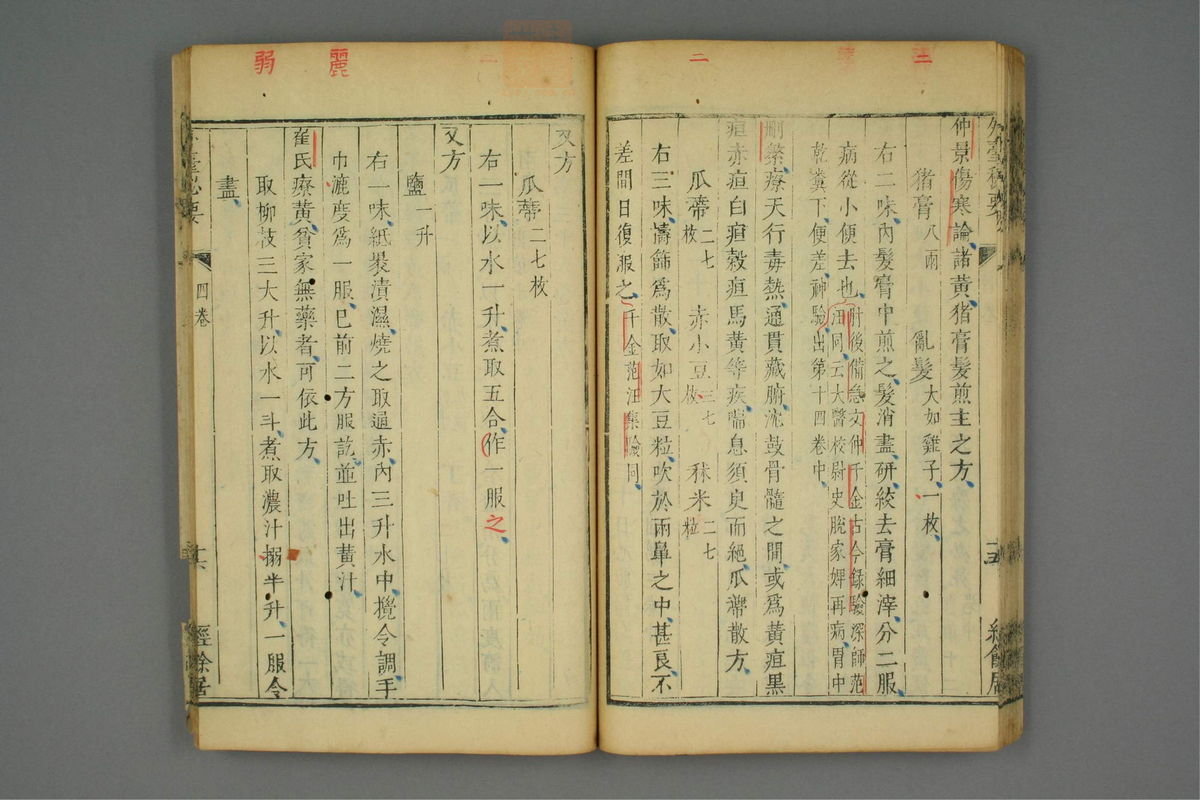 仲景傷寒論諸黃猪膏髮煎主之方
猪膏八兩 亂髮大如雞子一枚
右二味內髮膏中煎之髮消盡研絞去膏細滓分二服
病從小便去也肘後備急文仲千金古今録驗深師范
汪同云大醫校尉史脫家婢再病胃中
乾糞下便差神驗出第十四卷中
刪繁療天行毒熱通貫藏腑沈鼓骨髓之間或為黃疸黑
疸赤疸白疸穀疸馬黃等疾喘息須臾而絕瓜蔕散方
瓜蔕二七枚 赤小豆三七枚 秫米二七粒
右三味擣篩為散取如大豆粒吹於兩鼻之中甚良不
差間日復服之千金范汪集驗同
又方
瓜蔕二七枚
右一味以水一升煮取五合作一服之
又方
鹽一升
右一味紙裹漬濕燒之取通赤內三升水中攪令調手
巾漉度為一服已前二方服訖並吐出黃汁
崔氏療黃貧家無藥者可依此方
取柳枝三大升以水一斗煮取濃汁搦半升一服令
盡
四卷
經餘居
二
三
麗
弱